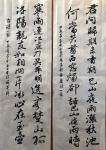 君問歸期未有期巴山夜雨漲秋池
何當共剪西窗燭卻話巴山夜雨時
寒雨連江夜入吳平明送客楚山孤
洛陽親友如相問一片冰心在玉壺